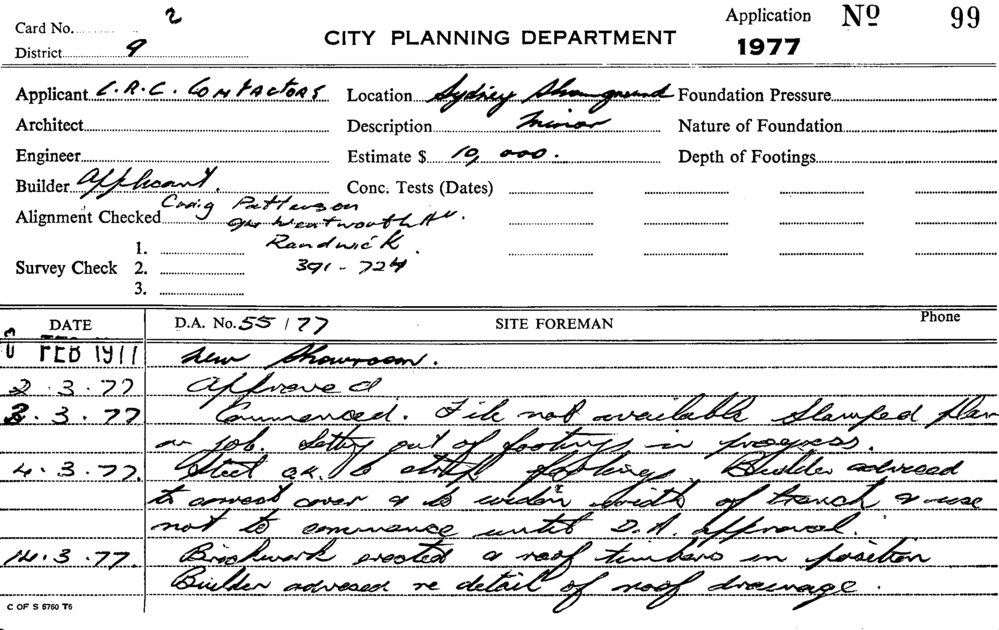 Card No. 2
District 9
CITY PLANNING DEPARTMENT
Application
1977
Nº 99
Applicant C.R.C. Contactors
Location Sydney Showground
Foundation Pressure
Architect
Description Minor
Nature of Foundation
Engineer
Estimate $ 10,000.
Depth of Footings
Builder Applicant.
Conc. Tests (Dates)
Craig Patterson
Alignment Checked
Wentworth Av.
Randwick
Survey Check 1.
2. 391-724
3.
DATE
D.A. No. 55/77
SITE FOREMAN
Phone
FEB 1977 New Showroom.
2.3.77 Approved
3.3.77 Commenced. File not available stamped plan
on job. Setting out of footings in progress.
4.3.77. Steel ok. to strip footings. Builder advesed
to correct cover & to widen width of trench & use
not to commence until D.A. approval.
14.3.77. Brickwork erected & roof timbers in position
Builder advesed re detail of roof drainage.
C OF S 6760 T6